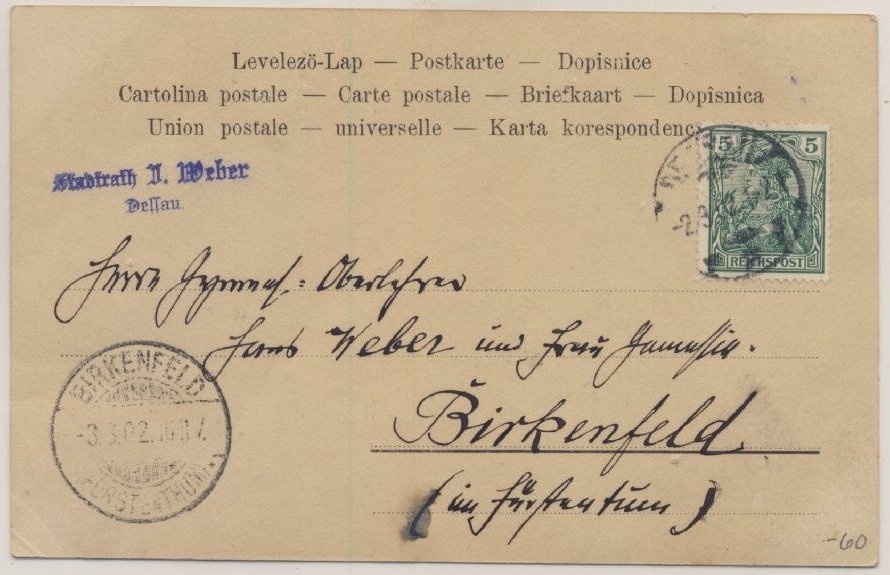 Levelezö-Lap — Postkarte — Dopisnice
Cartolina postale — Carte postale — Briefkaart — Dopîsnica
Union postale — universelle — Karta korespondenc
Stadtrath V. Weber
Dessau.
5 5
REICHSPOST
Herrn Gymnas: Oberlehrer
Hans Weber und Frau Gemahlin.
Birkenfeld
(im Fürstentum)
BIRKENFELD
-3.3.02.
FÜRSTENTHUM
-60